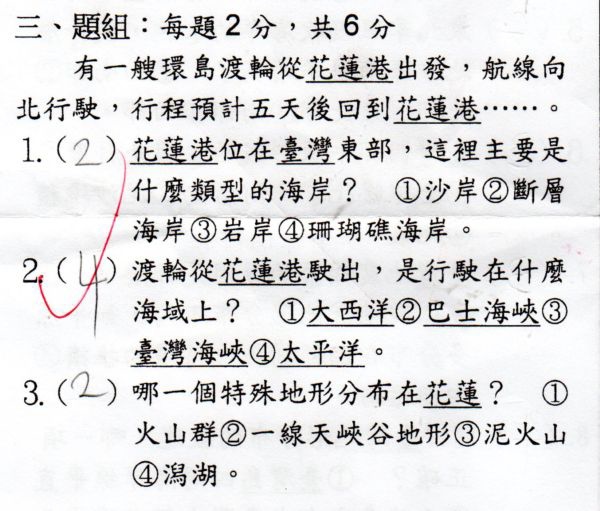 三、題組：每題2分，共6分
有一艘環島渡輪從花蓮港出發，航線向
北行駛，行程預計五天後回到花蓮港……。
1.（2）花蓮港位在臺灣東部，這裡主要是
什麼類型的海岸？　①沙岸②斷層
海岸③岩岸④珊瑚礁海岸。
2.（4）渡輪從花蓮港駛出，是行駛在什麼
海域上？　①大西洋②巴士海峽③
臺灣海峽④太平洋。
3.（2）哪一個特殊地形分布在花蓮？　①
火山群②一線天峽谷地形③泥火山
④潟湖。